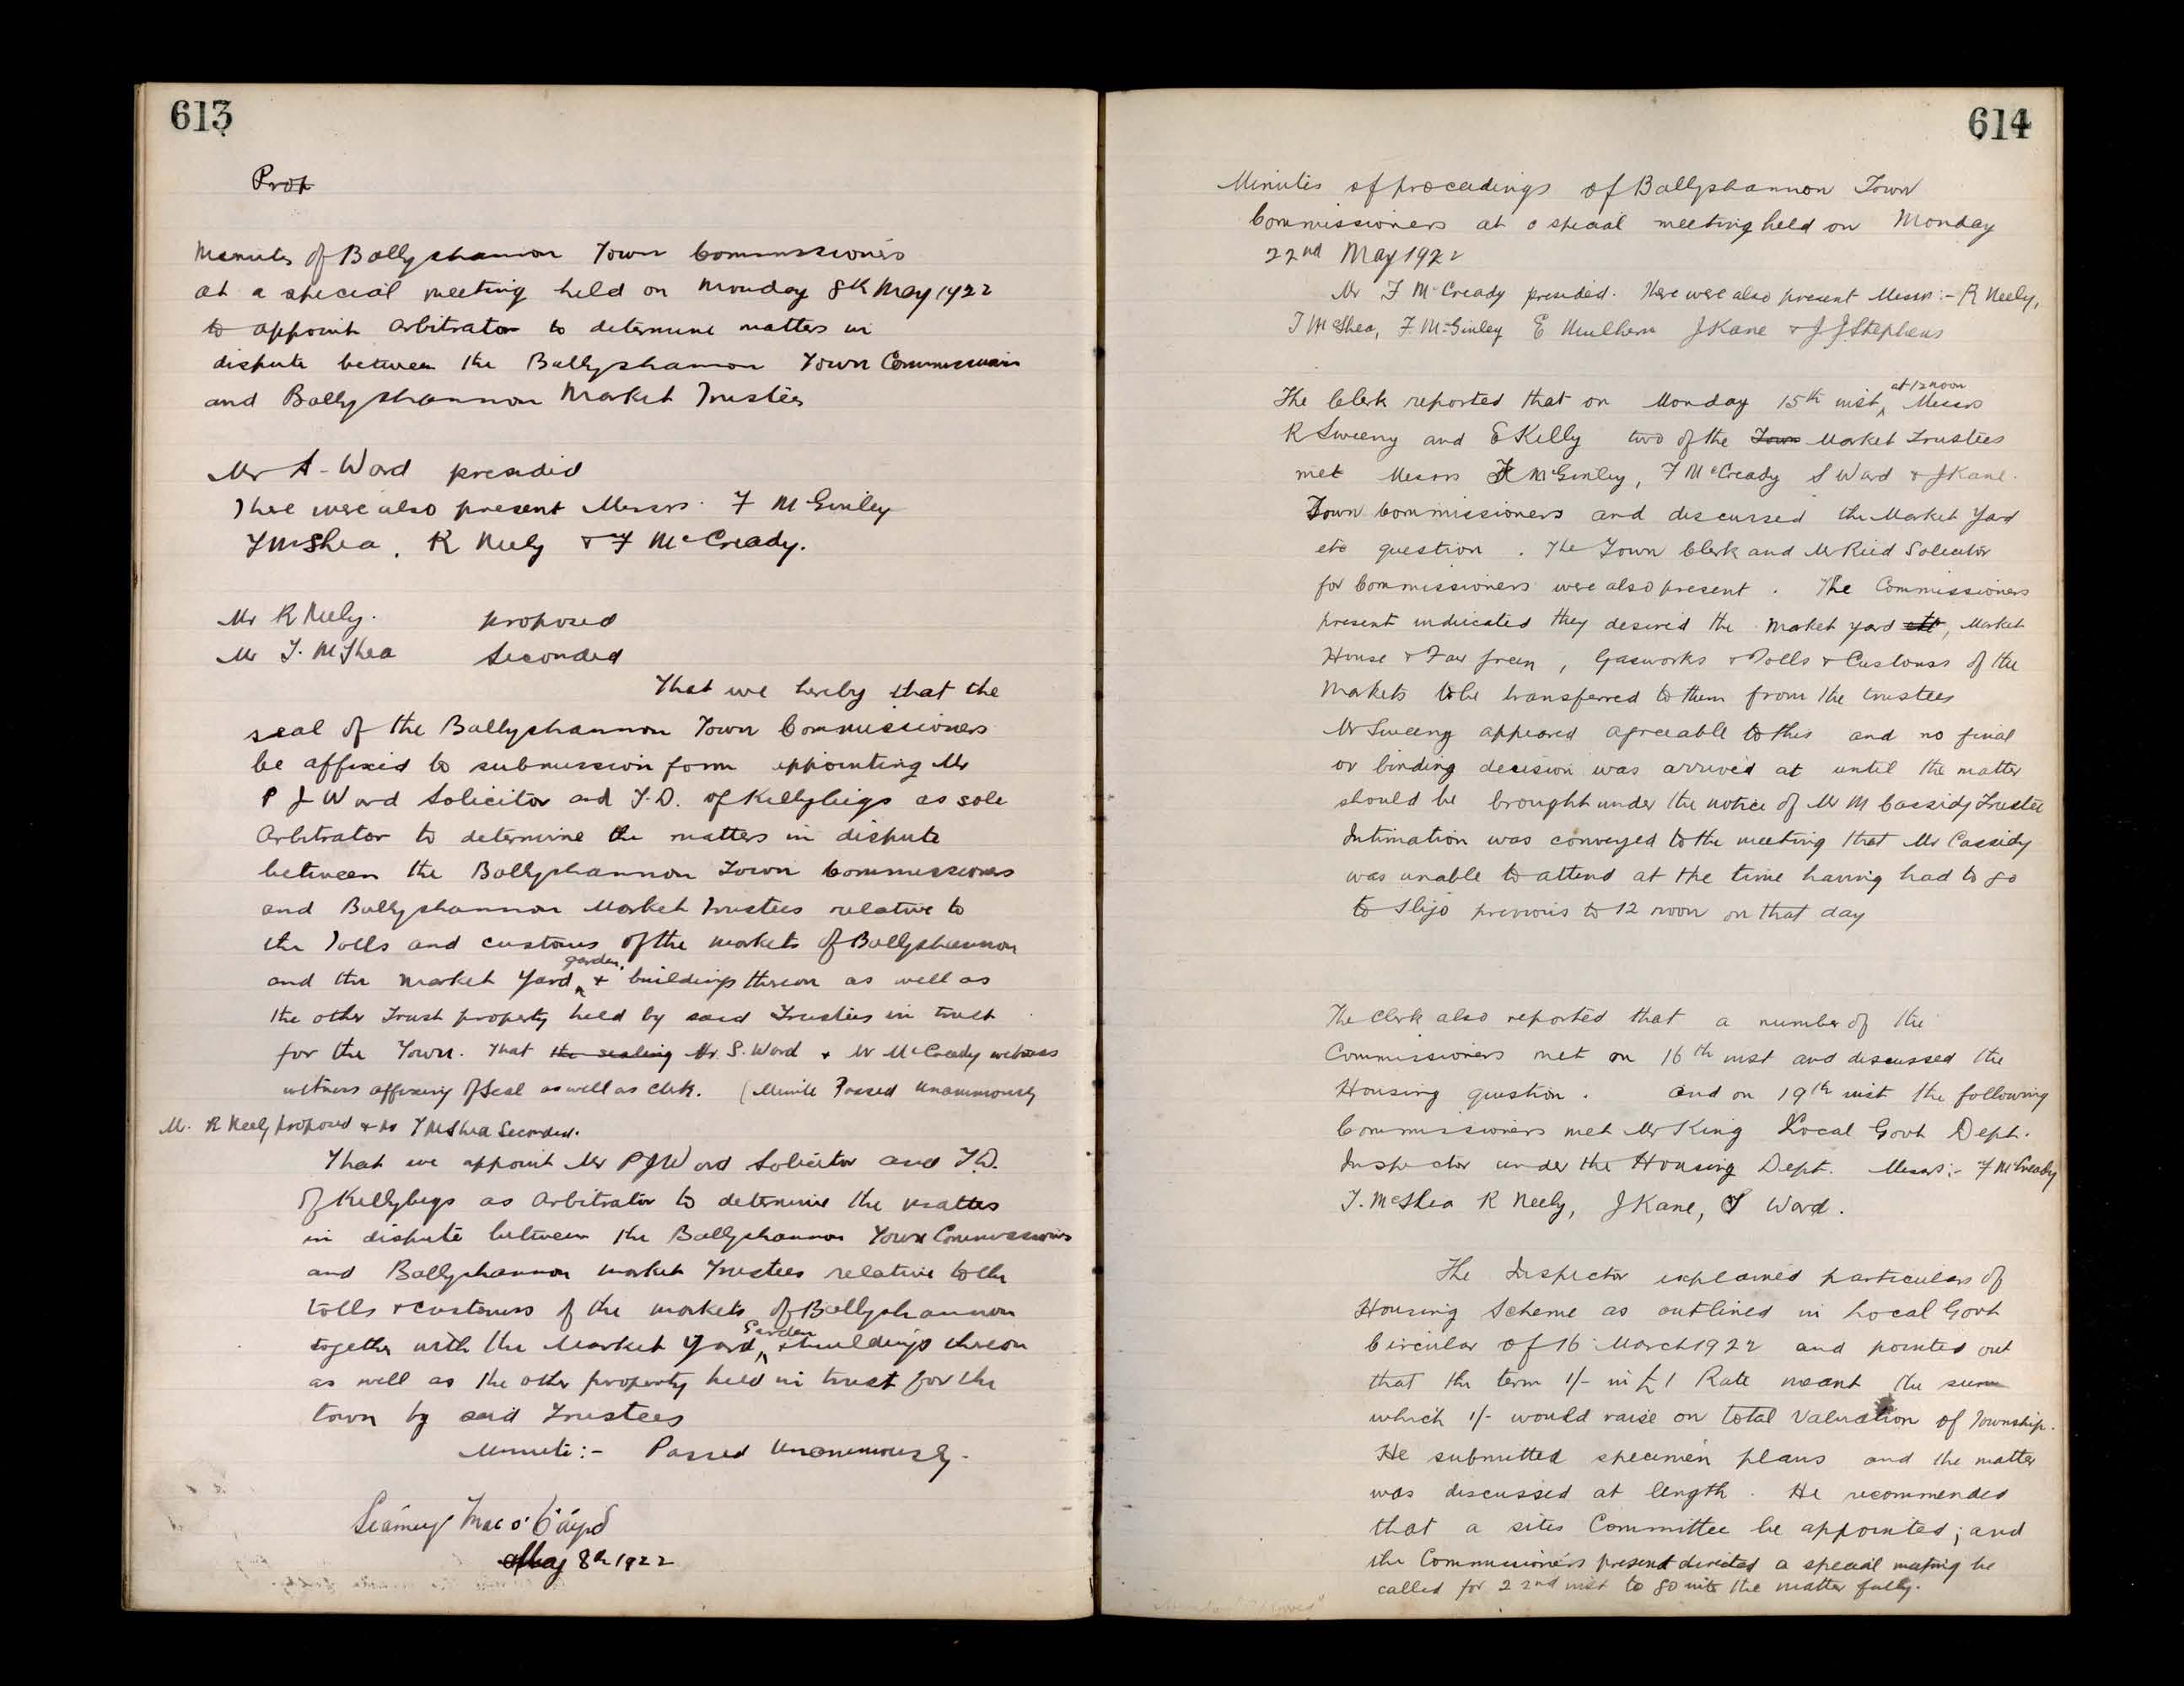 613
Prop
Minutes of Ballyshannon Town Commissioners
at a special meeting held on Monday 8th May 1922
to appoint Arbitrator to determine matters in
dispute between the Ballyshannon Town Commissioners
and Ballyshannon Market Trustees
Mr S. Ward presided
There were also present Messrs. F McGinley
T McShea, R Neely & F McCready.
Mr R Neely. proposed
Mr T. McShea Seconded
That we hereby that the
seal of the Ballyshannon Town Commissioners
be affixed to submission form appointing Mr
P J Ward Solicitor and T.D. of Killybegs as sole
Arbitrator to determine the matters in dispute
between the Ballyshannon Town Commissioners
and Ballyshannon Market Trustees relative to
the Tolls and customs of the markets of Ballyshannon
and the Market Yard garden, & buildings thereon as well as
the other Trust property held by said Trustees in trust
for the Town. That the sealing Mr. S. Ward & Mr McCready witness
witness affixing of Seal as well as Clerk. (Minute Passed Unanimously
Mr. R Neely proposed & Mr T McShea Seconded.
That we appoint Mr P J Ward Solicitor and T.D.
of Killybegs as Arbitrator to determine the matters
in dispute between the Ballyshannon Town Commissioners
and Ballyshannon Market Trustees relative to the
tolls & customs of the markets of Ballyshannon
together with the Market Yard, Garden & buildings thereon
as well as the other property held in trust for the
town by said Trustees
Minute:- Passed Unanimously.
May 8th 1922
614
Minutes of proceedings of Ballyshannon Town
Commissioners at a special meeting held on Monday
22nd May 1922
Mr F McCready presided. There were also present Messrs:- R Neely,
T McShea, F. McGinley E Mulhern J Kane & J J Stephens
The Clerk reported that on Monday 15th inst, at 12 noon Messrs
R Sweeny and E Kelly two of the Town Market Trustees
met Messrs F McGinley, F McCready S Ward & J Kane.
Town Commissioners and discussed the Market Yard
etc question. The Town Clerk and Mr Reid Solicitor
for Commissioners were also present. The Commissioners
present indicated they desired the Market yard etc, Market
House & Fair Green, Gasworks & Tolls & Customs of the
Markets to be transferred to them from the trustees
Mr Sweeny appeared agreeable to this and no final
or binding decision was arrived at until the matter
should be brought under the notice of Mr M Cassidy Trustee
Intimation was conveyed to the meeting that Mr Cassidy
was unable to attend at the time having had to go
to Sligo previous to 12 noon on that day
The Clerk also reported that a number of the
Commissioners met on 16th inst and discussed the
Housing question. and on 19th inst the following
Commissioners met Mr King Local Govt Dept.
Inspector under the Housing Dept. Messrs:- F McCready
T. McShea R Neely, J Kane, S Ward.
The Inspector explained particulars of
Housing Scheme as outlined in Local Govt
Circular of 16 March 1922 and pointed out
that the term 1/- in £1 Rate meant the sum
which 1/- would raise on total Valuation of Township.
He submitted specimen plans and the matter
was discussed at length. He recommended
that a sites Committee be appointed; and
the Commissioners present directed a special meeting be
called for 22nd inst to go into the matter fully.